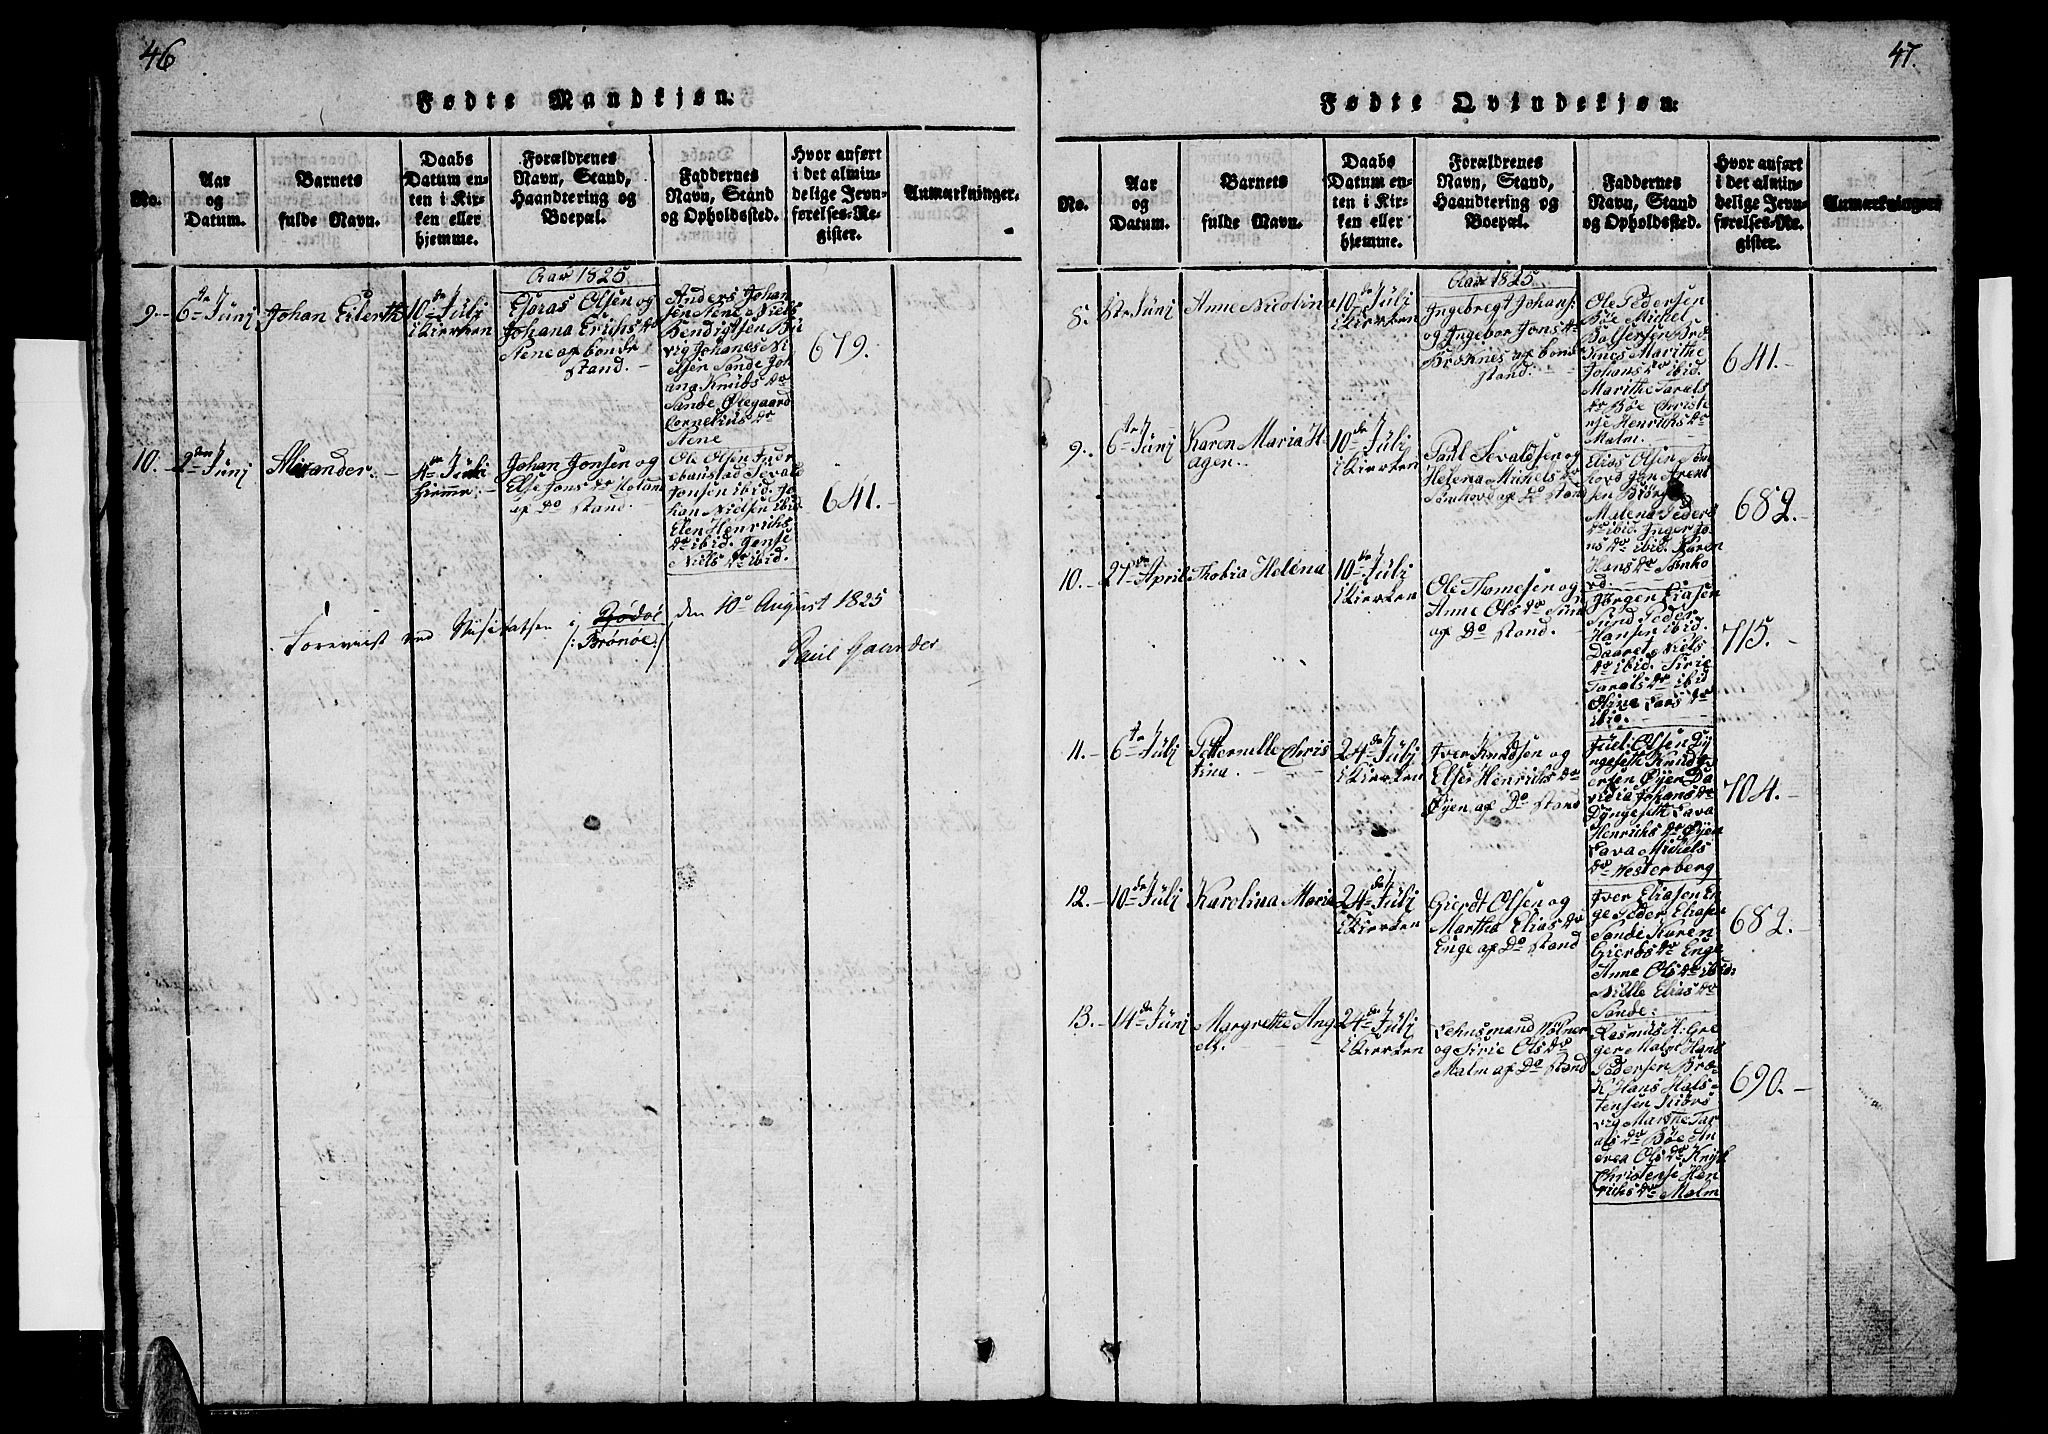 46
Fødte Mandkjøn.
No.
Aar
og
Datum.
Barnets
fulde Navn.
Daabs
Datum en-
ten i Kir-
ken eller
hjemme.
Forældrenes
Navn, Stand,
Haandtering og
Boepæl.
Faddernes
Navn, Stand
og Opholdssted.
Hvor anført
i det almin-
delige Jevn-
førelses-Re-
gister.
Anmærkninger.
Aar 1825
9.
6te Junj
Johan Eilerth
10de Julj
i Kierken
Esras Olsen og
Johana Erichs dr
Stene af bonde
stand.
Anders Johan
sen Stene Niels
Bendigtsen Bu
vig Johanes Ni
elsen Sande Joh
ana Knuds dr
Sande Ølegaard
Cornelius dr
Stene
679.
10.
2den Junj
Alexander.
4de Julj
hiemme
Johan Jonsen og
Else Jons dr
af Do stand.
Ole Olsen Indr
ebanstad Sevald
Jonsen ibid. Jo
han Nielsen ibid
Elen Henrichs
dr ibid. Jonse
Niels dr ibid.
641.
Foreviist ved Visitatsen i Rødøe den 10de August 1825
/: Brønøe :/
Paul Gaarder
47.
Fødte Qvindekjøn.
No.
Aar
og
Datum.
Barnets
fulde Navn.
Daabs
Datum en-
ten i Kir-
ken eller
hjemme.
Forældrenes
Navn, Stand,
Haandtering og
Boepæl.
Faddernes
Navn, Stand
og Opholdssted.
Hvor anført
i det almin-
delige Jevn-
førelses-Re-
gister.
Anmærkninger
Aar 1825
8.
Junj
Anne Nicolina
10de Julj
i Kierken
Ingebregt Johans:
og Ingebor Jons dr
Broknes af bonde
stand.
Ole Pedersen
Bøe Michel
Baltsersen Bro
knes Marithe
Johans dr ibid.
Marithe Tarals
dr Bøe Christe
nse Henrichs dr
Malm.
641.
9.
6te Junj
Karen Maria H
agen.
10de Julj
i Kierken
Paul Sevaldsen og
Helena Michels dr
Sømhovd af Do stand
Elias Olsen Søm
hovd Jon Arent
sen
Malena Peders
dr ibid. Inger Jo
ns dr ibid. Karen
Hans dr Sømho
vd.
682.
10.
27de April
Thobia Helena
10de Julj
i Kierken
Ole Thomesen og
Anne Ols dr Sund
af Do stand.
Jørgen Eliasen
Sund Peder
Hansen ibid.
Daaret Niels
dr ibid. Sirie
Tarals dr ibid
Oline Lars dr
ibid.
715.
11.
6te Julj
Petternille Chris
tina.
24de Julj
i Kierken
Iver Knudsen og
Else Henrichs dr
Øyen af Do stand
Juel Olsen Dy
ngeseth Knud Iv
ersen Øyen Da
vidia Johans dr
Dyngeseth Lava
Henrichs dr Øyen
Lava Michels
dr Vesterberg
704.
12.
10de Julj
Karolina Maria
24de Julj
i Kierken
Gierdt Olsen og
Martha Elias dr
Enge af Do stand
Iver Eliasen En
ge Peder Eliasen
Sande Karen
Gierds dr Enge
Anne Ols dr ibid:
Nille Elias dr
Sande:
682.
13.
14de Junj
Margrethe Ang
ell.
24de Julj
i Kierken
Lehnsmand
og Sirie Ols dr
Malm af Do stand
Rasmus H: Gre
ger Malm Hans
Pedersen Bro
k: Hans Hals-
tensen Kiørs
vig Marithe Tar
als dr Bøe An
drea Ols dr
Christense Hen
richs dr Malm
690.